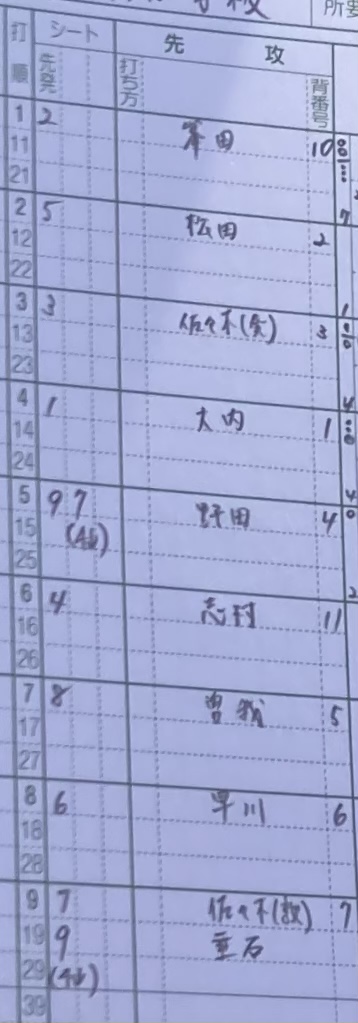 打順 シート 先攻 所要
先発 打ち方 背番号
1 2 本田 10
11
21
2 5 松田 2
12
22
3 3 佐々木 3
13
23
4 1 大内 1
14
24
5 9 7 野田 4
15
25
6 4 志村 11
16
26
7 8 曽我 5
17
27
8 6 早川 6
18
28
9 7 佐々木 7
19 9 重石
29
39